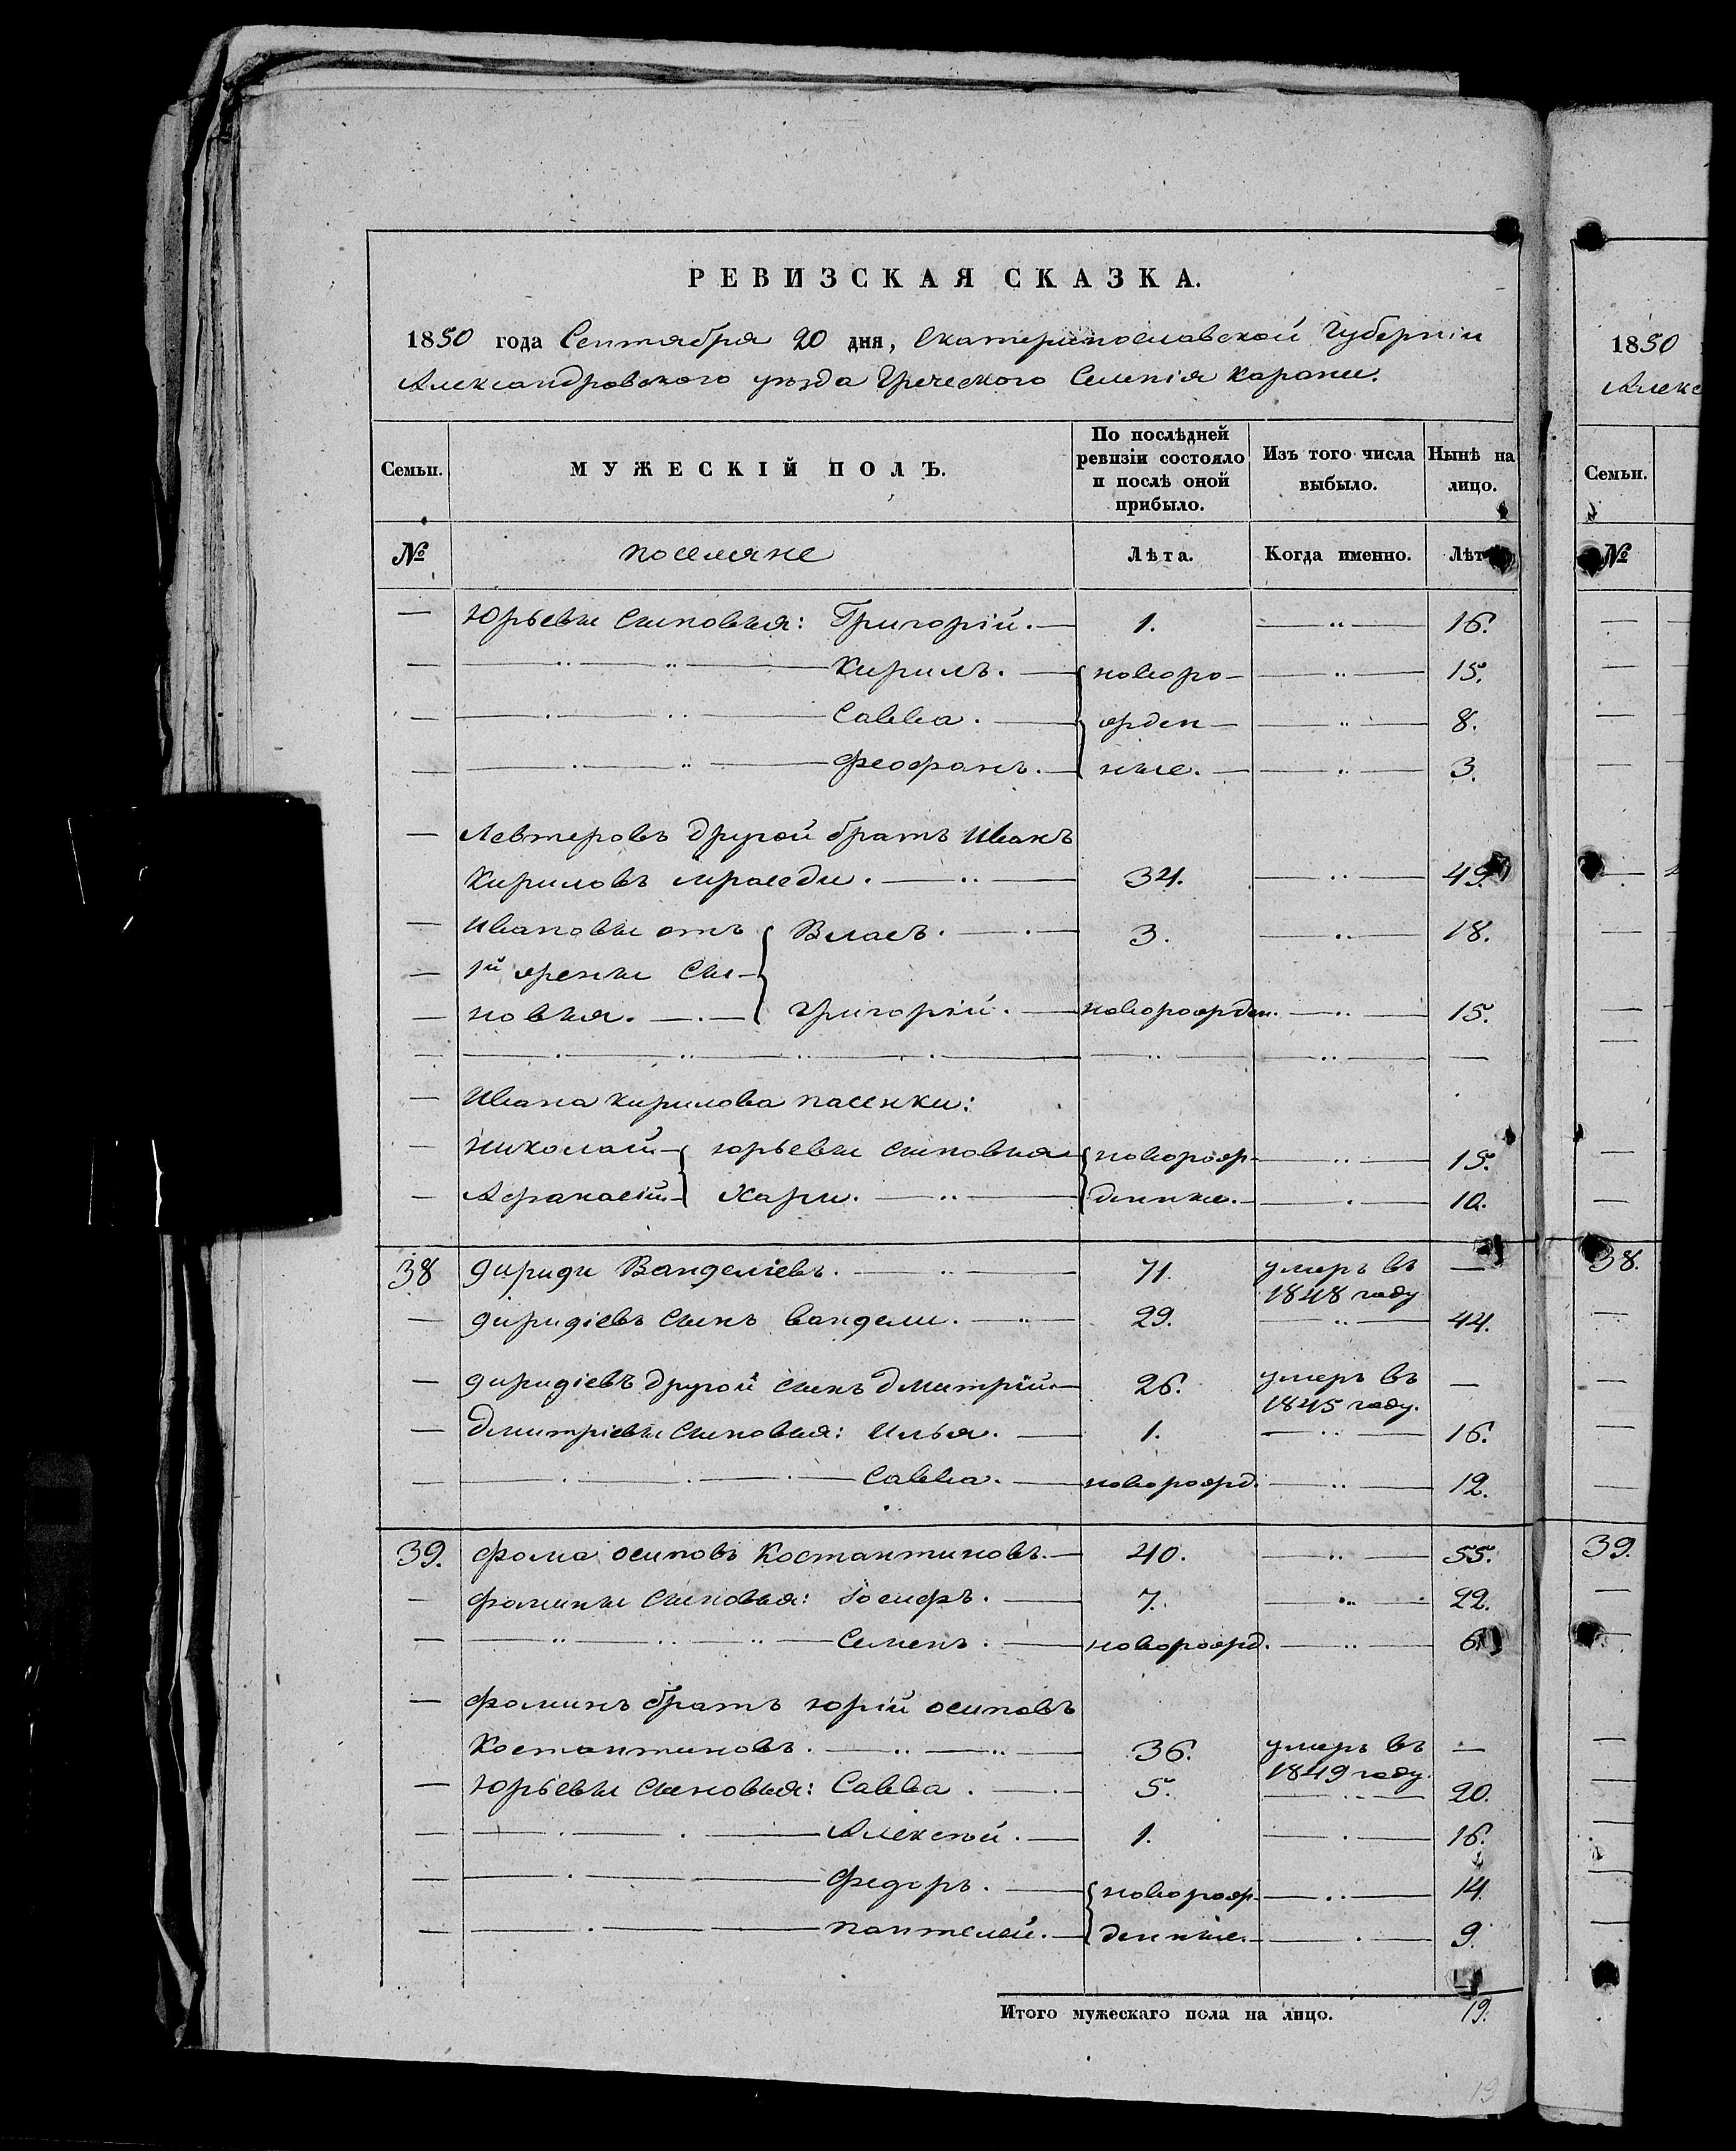 РЕВИЗСКАЯ СКАЗКА.
1850 года Сентября 20 дня, Екатеринославской Губерніи
Александровского уѣзда Греческого Селенія Карани.
Семьи. МУЖЕСКІЙ ПОЛЪ. По послѣдней ревизіи состояло и послѣ оной прибыло. Изъ того числа выбыло. Нынѣ на лицо.
№ поселяне Лѣта. Когда именно. Лѣт
— Юрьевы сыновья: Григорій. — 1. — 16.
— Кирилъ. — новоро— 15.
— Савва. — жден— 8.
— Феофанъ. — ные. — 3.
— Левтеровъ другой братъ Иванъ
Кириловъ — 34. — 49.
— Ивановы отъ Власъ. — 3. — 18.
— 1й жены сы—
— новья. — Григорій. — новорожден. — 15.
— Ивана Кирилова пасенки:
— Николай — Юрьевы сыновья новорож— 15.
— Афанасій — Хари. — денные. — 10.
38 Вангеліевъ. — 71. умеръ въ 1848 году —
— сынъ Вангели. — 29. — 44.
— другой сынъ Дмитрій — 26. умеръ въ 1845 году. —
— Дмитріевы сыновья: Илья. — 1. — 16.
— Савва. — новорожд. — 12.
39. Фома Осиповъ Костантиновъ. — 40. — 55.
— Фомины сыновья: Іосифъ. — 7. — 22.
— Семенъ. — новорожд. — 6.
— Фоминъ братъ Юрій Осиповъ
Костантиновъ. — 36. умеръ въ 1849 году. —
— Юрьевы сыновья: Савва. — 5. — 20.
— Алексѣй. — 1. — 16.
— Федоръ. — новорож— 14.
— Пантелей. — денные. — 9.
Итого мужескаго пола на лицо. 19.
19
1850
Алекс
Семьи.
№
38.
39.